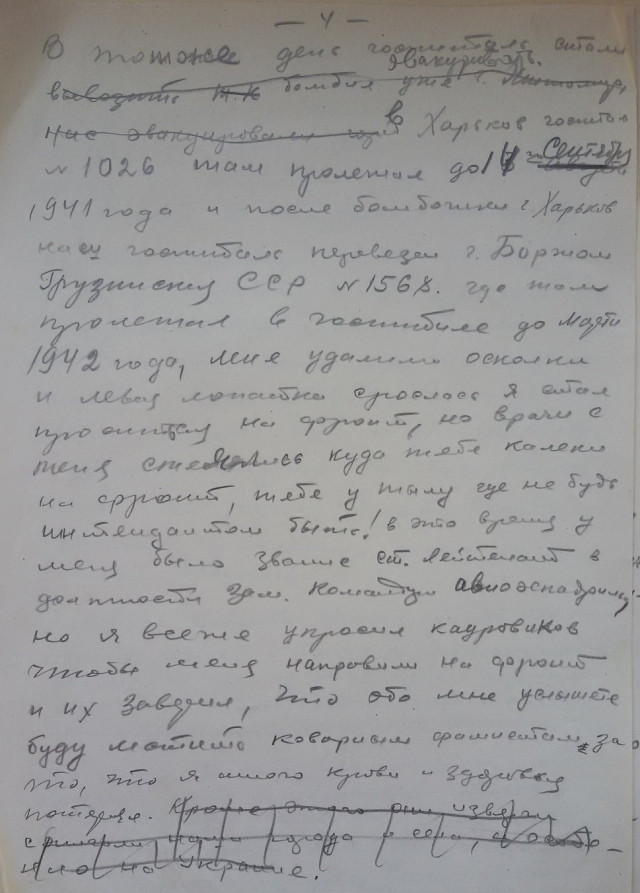 — 4 —
В тотже день госпиталь стали
эвакуировать.
вывозить т.к бомбил уже г. Житомир,
нас эвакуировали в Харьков госпит.
N 1026 там пролежал до 14 Сентября
1941 года и после бомбошки г. Харьков
наш госпиталь перевезен г. Боржом
Грузинская ССР N 1568. где там
пролежал в госпитале до марта
1942 года, мне удалили осколки
и левая лопатка срослась я стал
проситься на фронт, но врачи с
меня смеялись куда тебе калеки
на фронт, тебе у тылу где не будь
интендантом быть! в это время у
меня было звание ст. лейтенант в
должности зам. командир авиаэскадрильи,
но я всеже упросил кадровиков
чтобы меня направили на фронт
и их заверил, что обо мне услышите
буду мстить коварным фашистам, за
то, что я много крови и здоровья
потерял. Кроме этого они изверги
сожгли наши города и села, а особе-
нно на Украине.